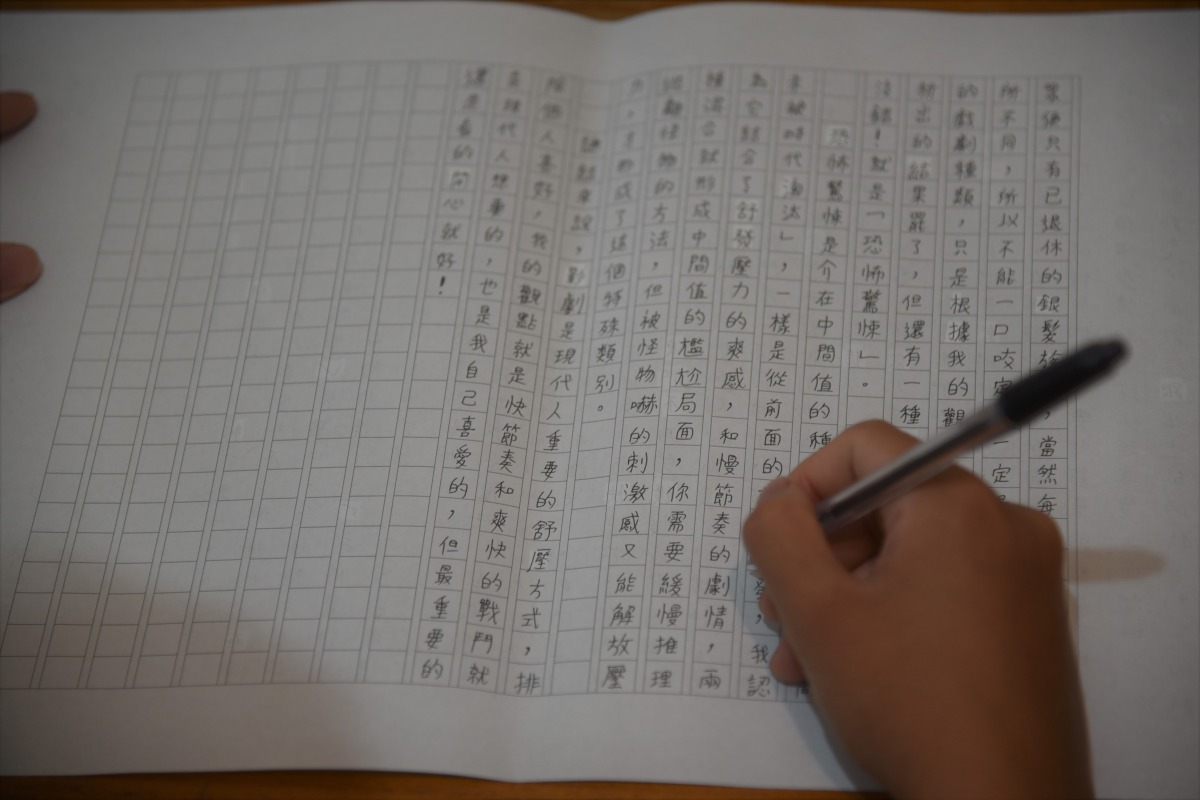 眾後只有已退休的銀髮族,當然每
所不同,所以不能一口咬定一定
的戲劇種類,只是根據我的觀
新出的結果罷了,但還有一種
沒錯!就是「恐怖驚悚」。
恐怖驚悚是介在中間值的種
主被時代淘汰」,一樣是從前面的
為它結合了舒發壓力的爽感,和慢節奏的劇情,兩
種混合就形成中間值的尷尬局面,你需要緩慢推理
怪物的方法,但被怪物嚇的刺激感又能解放壓
力,才形成了這個特殊類別。
總結來說,影劇是現代人重要的舒壓方式,排
除個人喜好,我的觀點就是快節奏和爽快的戰鬥就
是現代人想看的,也是我自己喜愛的,但最重要的
還是看的開心就好!